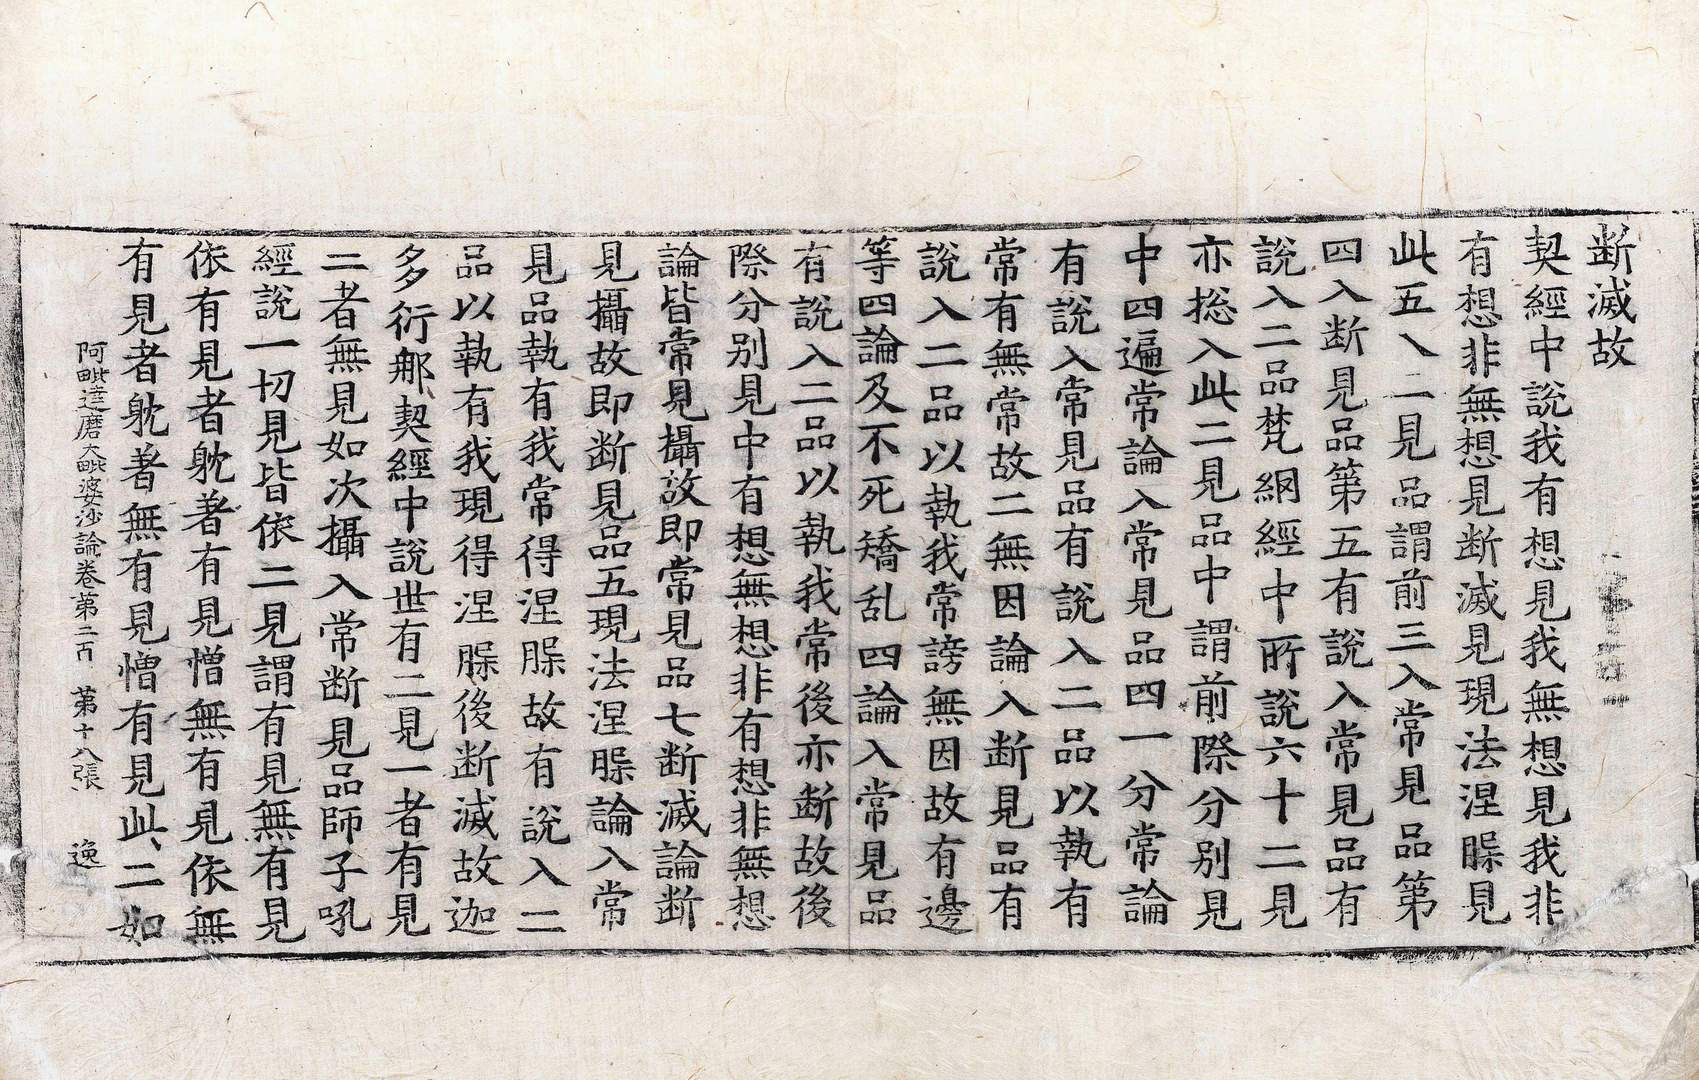 断滅故
契經中說我有想見我無想見我非
有想非無想見断滅見現法涅槃見
此五入二見品謂前三入常見品第
四入断見品第五有說入常見品有
說入二品梵網經中所說六十二見
亦揔入此二見品中謂前際分別見
中四遍常論入常見品四一分常論
有說入常見品有說入二品以執有
常有無常故二無因論入断見品有
說入二品以執我常謗無因故有邊
等四論及不死矯乱四論入常見品
有說入二品以執我常後亦断故後
際分別見中有想無想非有想非無想
論皆常見攝故即常見品七断滅論断
見攝故即断見品五現法涅槃論入常
見品執有我常得涅槃故有說入二
品以執有我現得涅槃後断滅故迦
多衍那契經中說世有二見一者有見
二者無見如次攝入常断見品師子吼
經說一切見皆依二見謂有見無有見
依有見者躭著有見憎無有見依無
有見者躭著無有見憎有見此二如
阿毗達磨大毗婆沙論卷第二百 第十八張 逸